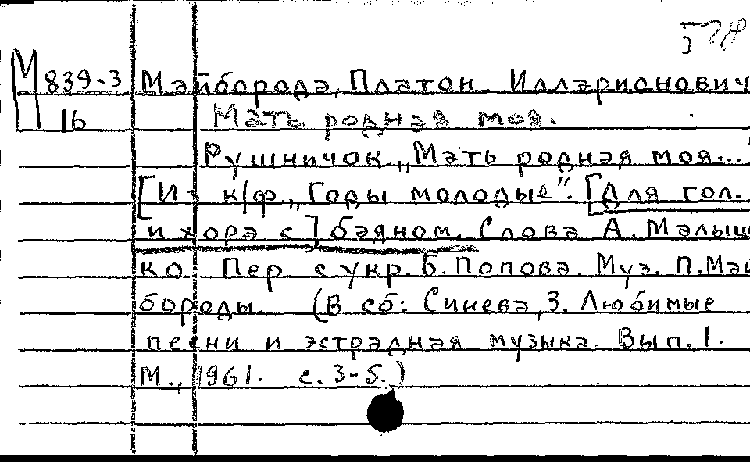 578
М 839-3 Майборода, Платон Илларионович
16 Мать родная моя.
Рушничок „Мать родная моя..."
[Из к/ф „Годы молодые". [Для гол.
и хора с] баяном. Слова А. Малыш
ко. Пер. с укр. Б. Попова. Муз. П. Май
бороды. (В сб: Синева, З. Любимые
песни и эстрадная музыка. Вып. 1.
М., 1961. с. 3-5.)